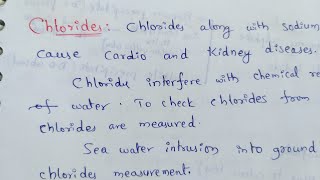 Chlorides: Chlorides along with sodium
cause Cardio and Kidney diseases.
Chloride interfere with chemical re
of water. To check chlorides from
chlorides are measured.
Sea water intrusion into ground
chlorides measurement.